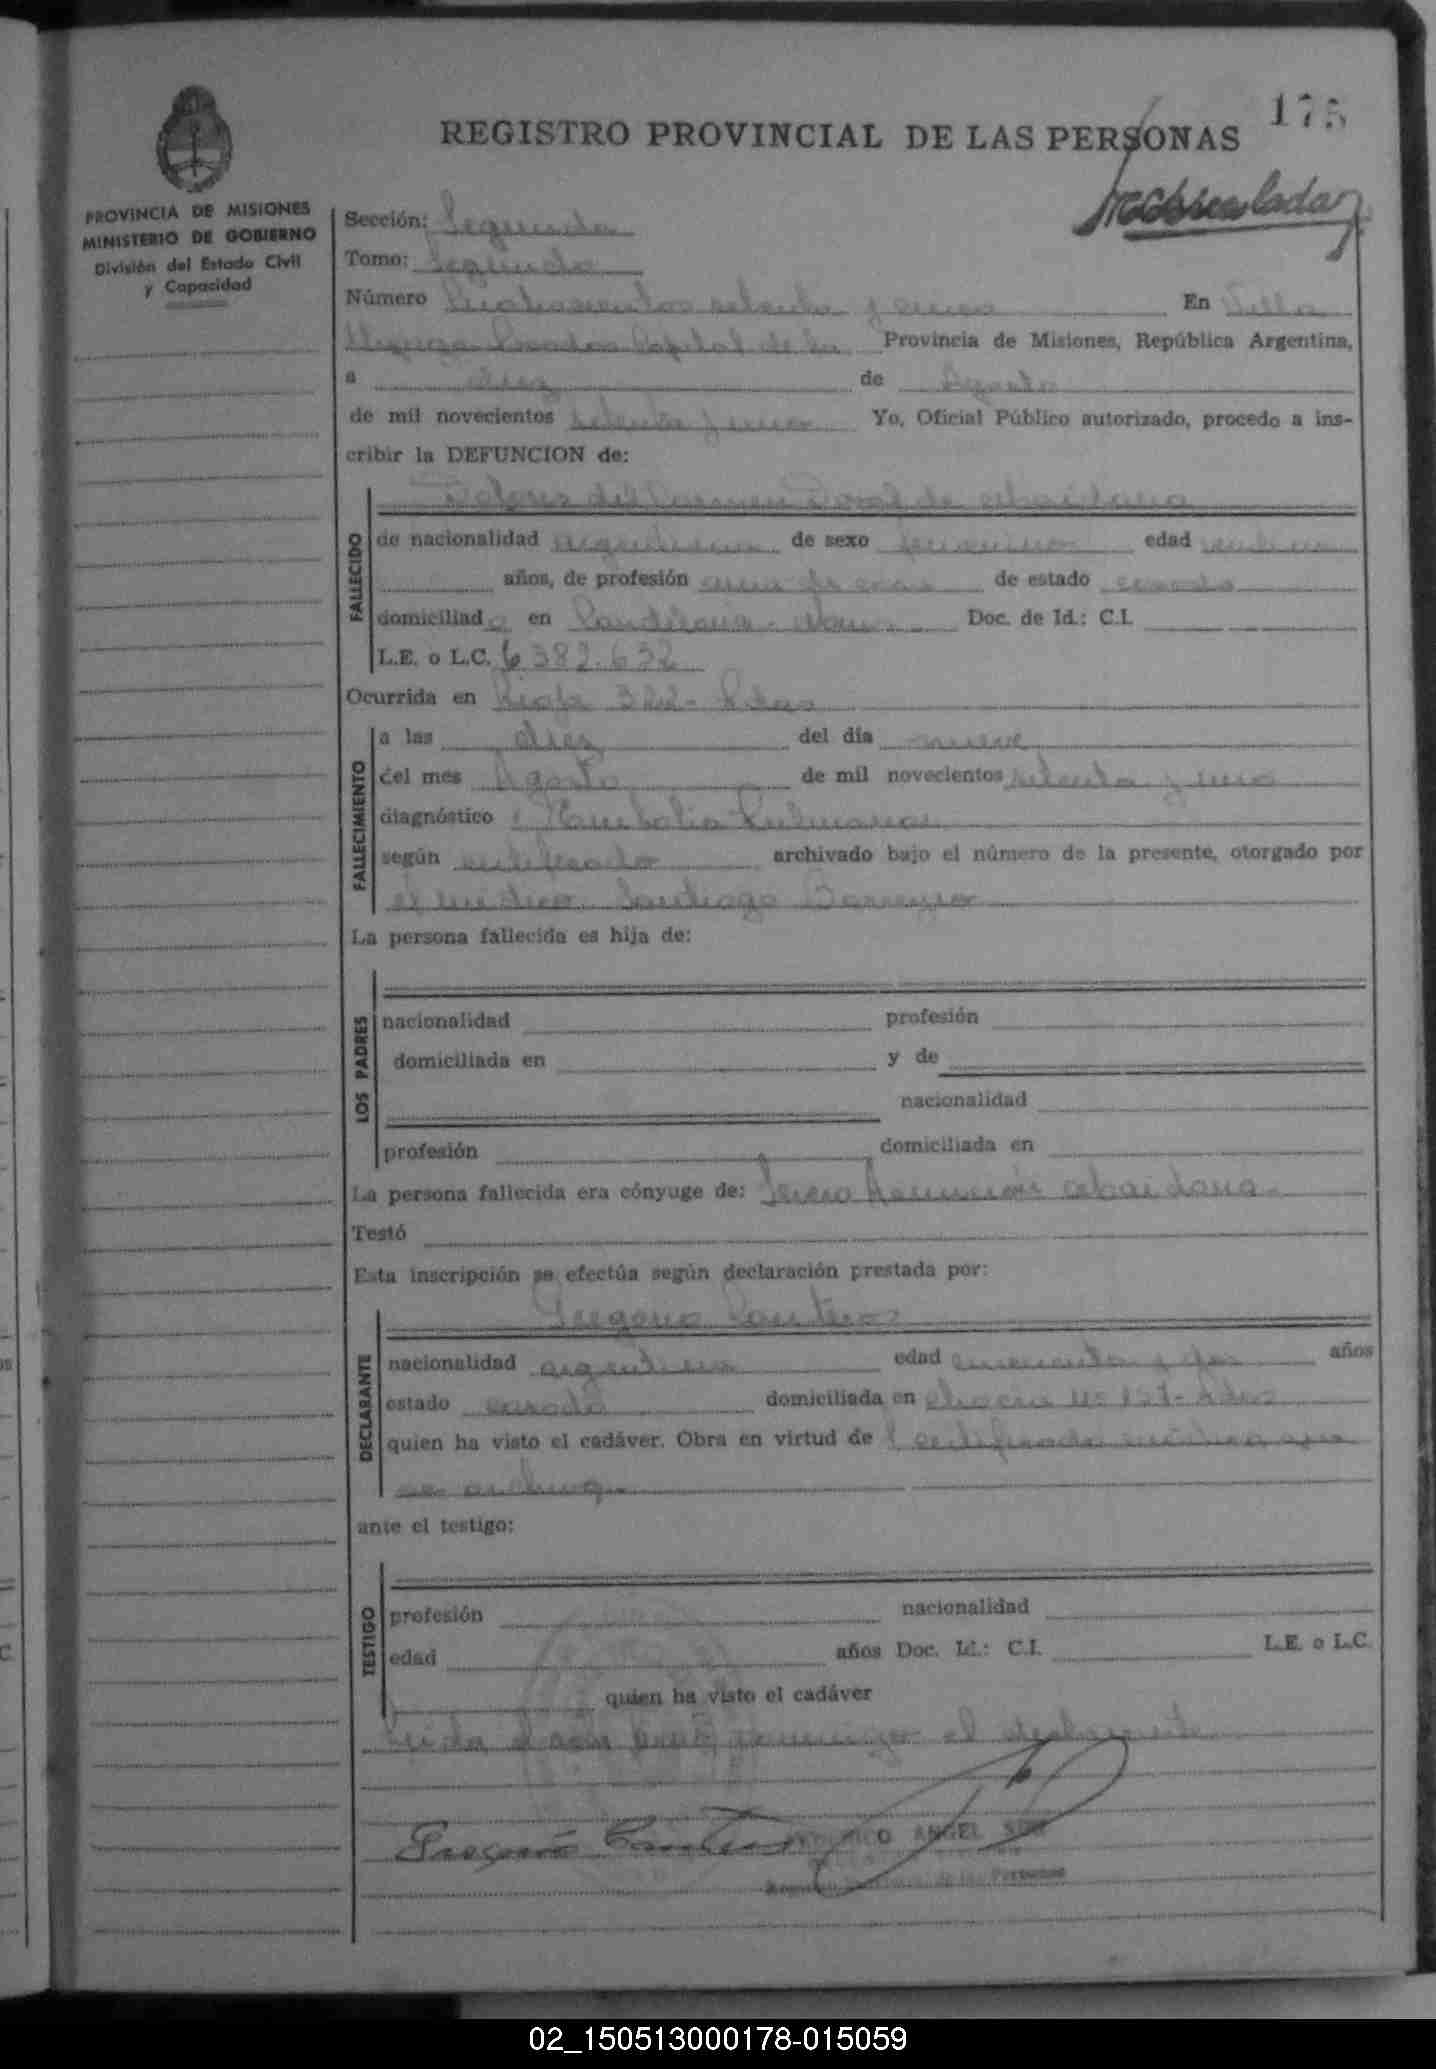 175
REGISTRO PROVINCIAL DE LAS PERSONAS
PROVINCIA DE MISIONES
MINISTERIO DE GOBIERNO
División del Estado Civil
y Capacidad
Sección: Segunda
Tomo: Segundo
Número Cuatrocientos setenta y cinco En Villa
Urquiza Posadas Capital de la Provincia de Misiones, República Argentina,
a diez de Agosto
de mil novecientos setenta y uno Yo, Oficial Público autorizado, procedo a ins-
cribir la DEFUNCION de:
Dolores del Carmen de
FALLECIDO
de nacionalidad argentina de sexo femenino edad
años, de profesión ama de casa de estado casada
domiciliada en Candelaria - Doc. de Id.: C.I.
L.E. o L.C. 6 382.632
Ocurrida en Rioja 322 - Pdas
FALLECIMIENTO
a las diez del día nueve
del mes Agosto de mil novecientos setenta y uno
diagnóstico Embolia Pulmonar
según certificado archivado bajo el número de la presente, otorgado por
el médico Santiago Barreyro
La persona fallecida es hija de:
LOS PADRES
nacionalidad profesión
domiciliada en y de
nacionalidad
profesión domiciliada en
La persona fallecida era cónyuge de: Asunción
Testó
Esta inscripción se efectúa según declaración prestada por:
Gregorio Canteros
DECLARANTE
nacionalidad argentina edad cincuenta y dos años
estado casado domiciliada en chacra Nº 157 - Pdas
quien ha visto el cadáver. Obra en virtud de l certificado médico que
se archiva
ante el testigo:
TESTIGO
profesión nacionalidad
edad años Doc. Id.: C.I. L.E. o L.C.
quien ha visto el cadáver
Leida el acta firma conmigo el declarante
Gregorio Canteros
ANGEL
de las Personas
02_150513000178-015059